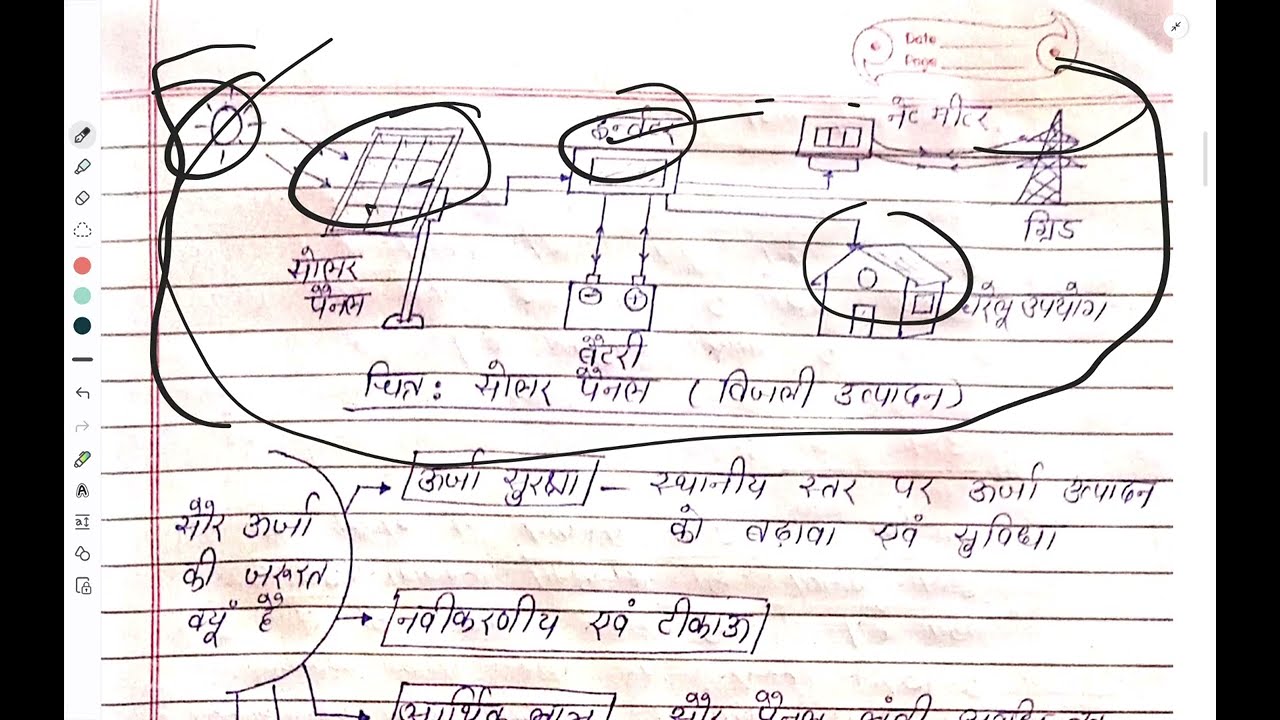 Date
Page
इन्वर्टर
नेट मीटर
ग्रिड
सोलर
पैनल
घरेलू उपयोग
बैटरी
चित्र: सोलर पैनल (बिजली उत्पादन)
ऊर्जा सुरक्षा - स्थानीय स्तर पर ऊर्जा उत्पादन
को बढ़ावा एवं सुविधा
सौर ऊर्जा
की जरूरत
क्यूं है
नवीकरणीय एवं टीकाऊ
आर्थिक लाभ सौर पैनल लंबी